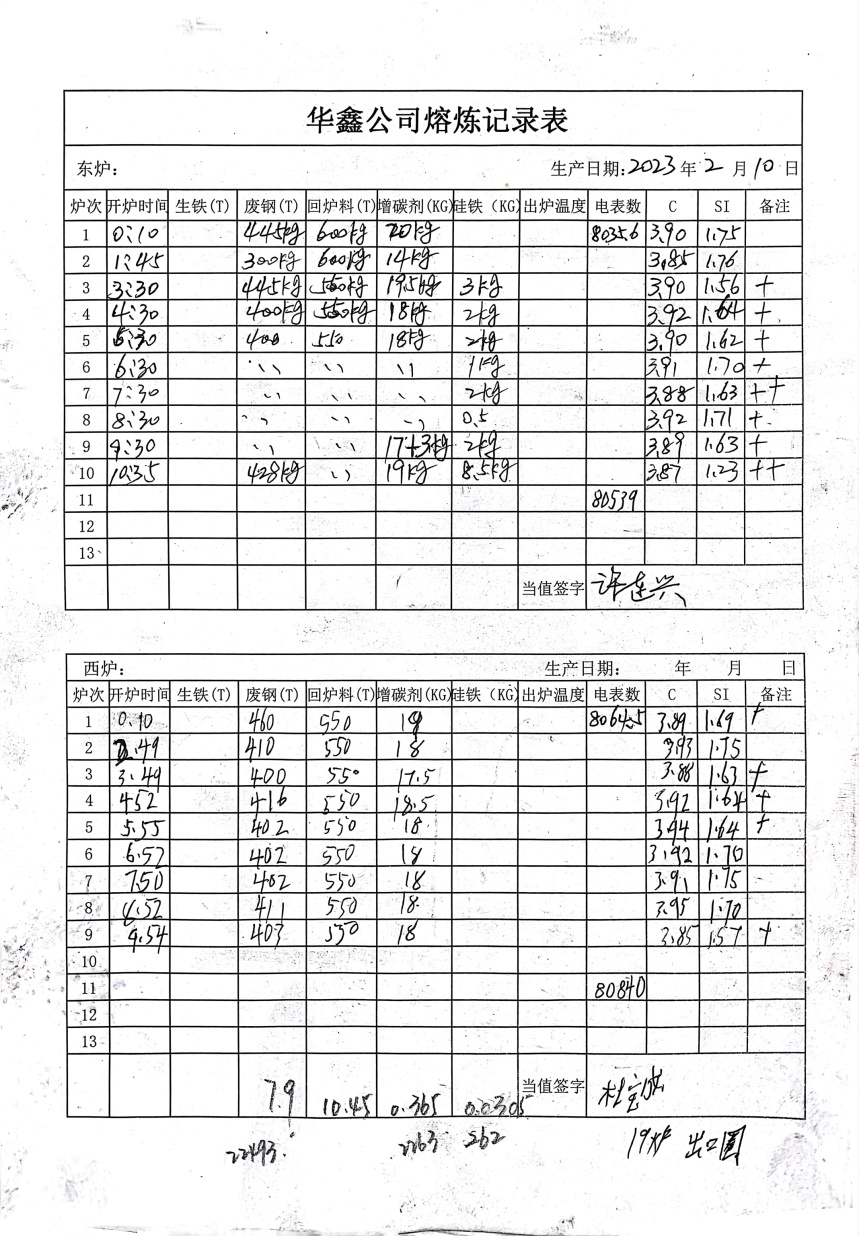 华鑫公司熔炼记录表
东炉: 生产日期:2023 年 2 月 10 日
炉次 开炉时间 生铁(T) 废钢(T) 回炉料(T) 增碳剂(KG) 硅铁 (KG) 出炉温度 电表数 C SI 备注
1 0:10 445kg 600kg 20kg 80356 3.90 1.75
2 1:45 300kg 600kg 14kg 3.85 1.76
3 3:30 445kg 550kg 19.5kg 3kg 3.90 1.56 +
4 4:30 400kg 550kg 18kg 2kg 3.92 1.64 +
5 5:30 400 550 18kg 2kg 3.90 1.62 +
6 6:30 、、 、、 、、 1kg 3.91 1.70 +
7 7:30 、、 、、 、、 2kg 3.88 1.63 ++
8 8:30 、、 、、 、、 0.5 3.92 1.71 +
9 9:30 、、 、、 17+3kg 2kg 3.89 1.63 +
10 10:35 428kg 、、 19kg 8.5kg 3.87 1.23 ++
11 80539
12
13
当值签字 许连兴
西炉: 生产日期: 年 月 日
炉次 开炉时间 生铁(T) 废钢(T) 回炉料(T) 增碳剂(KG) 硅铁 (KG) 出炉温度 电表数 C SI 备注
1 0.10 460 550 19 80642.5 3.89 1.69 +
2 2.49 410 550 18 3.93 1.75
3 3.49 400 550 17.5 3.88 1.63 +
4 4.52 416 550 18.5 3.92 1.64 +
5 5.55 402 550 18 3.94 1.64 +
6 6.57 402 550 18 3.92 1.70
7 7.50 402 550 18 3.91 1.75
8 8.52 411 550 18 3.95 1.70
9 9.54 403 550 18 3.85 1.57 +
10
11 80840
12
13
当值签字
7.9 10.45 0.365 0.0305
22493. 2263 262 19炉 出口圆